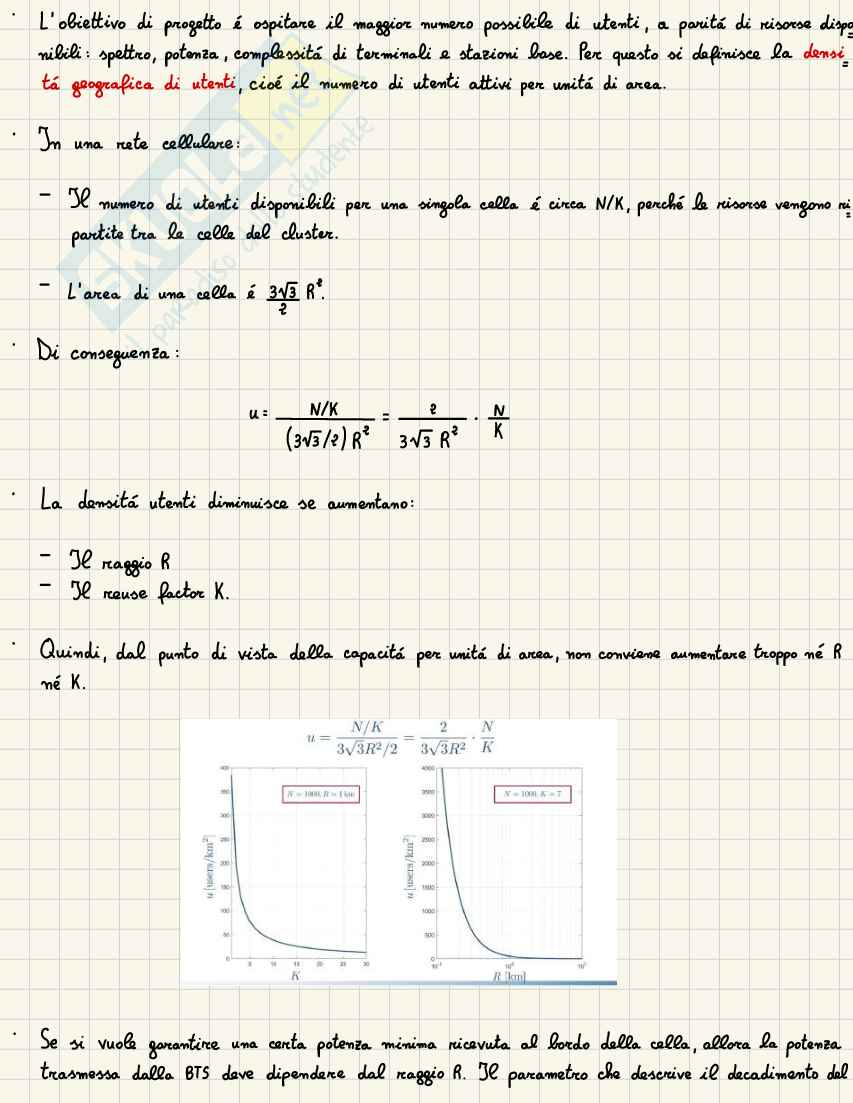 · L'obiettivo di progetto é ospitare il maggior numero possibile di utenti, a paritá di risorse dispo
nibili: spettro, potenza, complessitá di terminali e stazioni base. Per questo si definisce la densi
tá geografica di utenti, cioé il numero di utenti attivi per unitá di area.
· In una rete cellulare:
- Il numero di utenti disponibili per una singola cella é circa N/K, perché le risorse vengono ri
partite tra le celle del cluster.
- L'area di una cella é 3√3/2 R².
· Di conseguenza:
u = N/K / (3√3/2) R² = 2 / 3√3 R² · N/K
· La densitá utenti diminuisce se aumentano:
- Il raggio R
- Il reuse factor K.
· Quindi, dal punto di vista della capacitá per unitá di area, non conviene aumentare troppo né R
né K.
u = N/K / 3√3R²/2 = 2 / 3√3R² · N/K
N = 1000, R = 1 km
u [users/km²]
400
350
300
250
200
150
100
50
0
5 10 15 20 25 30
K
N = 1000, K = 7
u [users/km²]
4000
3500
3000
2500
2000
1500
1000
500
0
10⁻¹ 10⁰ 10¹
R [km]
· Se si vuole garantire una certa potenza minima ricevuta al bordo della cella, allora la potenza
trasmessa dalla BTS deve dipendere dal raggio R. Il parametro che descrive il decadimento del
SKUOLA.net
il paradiso dello studente